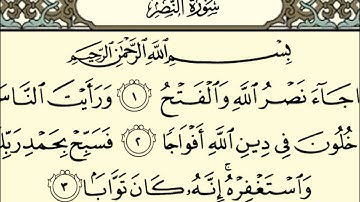 سُورَةُ النَّصْرِ
بِسْمِ اللَّهِ الرَّحْمَٰنِ الرَّحِيمِ
جَآءَ نَصْرُ اللَّهِ وَالْفَتْحُ ١ وَرَأَيْتَ النَّاسَ
خُلُونَ فِي دِينِ اللَّهِ أَفْوَاجًا ٢ فَسَبِّحْ بِحَمْدِ رَبِّكَ
وَاسْتَغْفِرْهُ ۚ إِنَّهُ كَانَ تَوَّابًا ٣